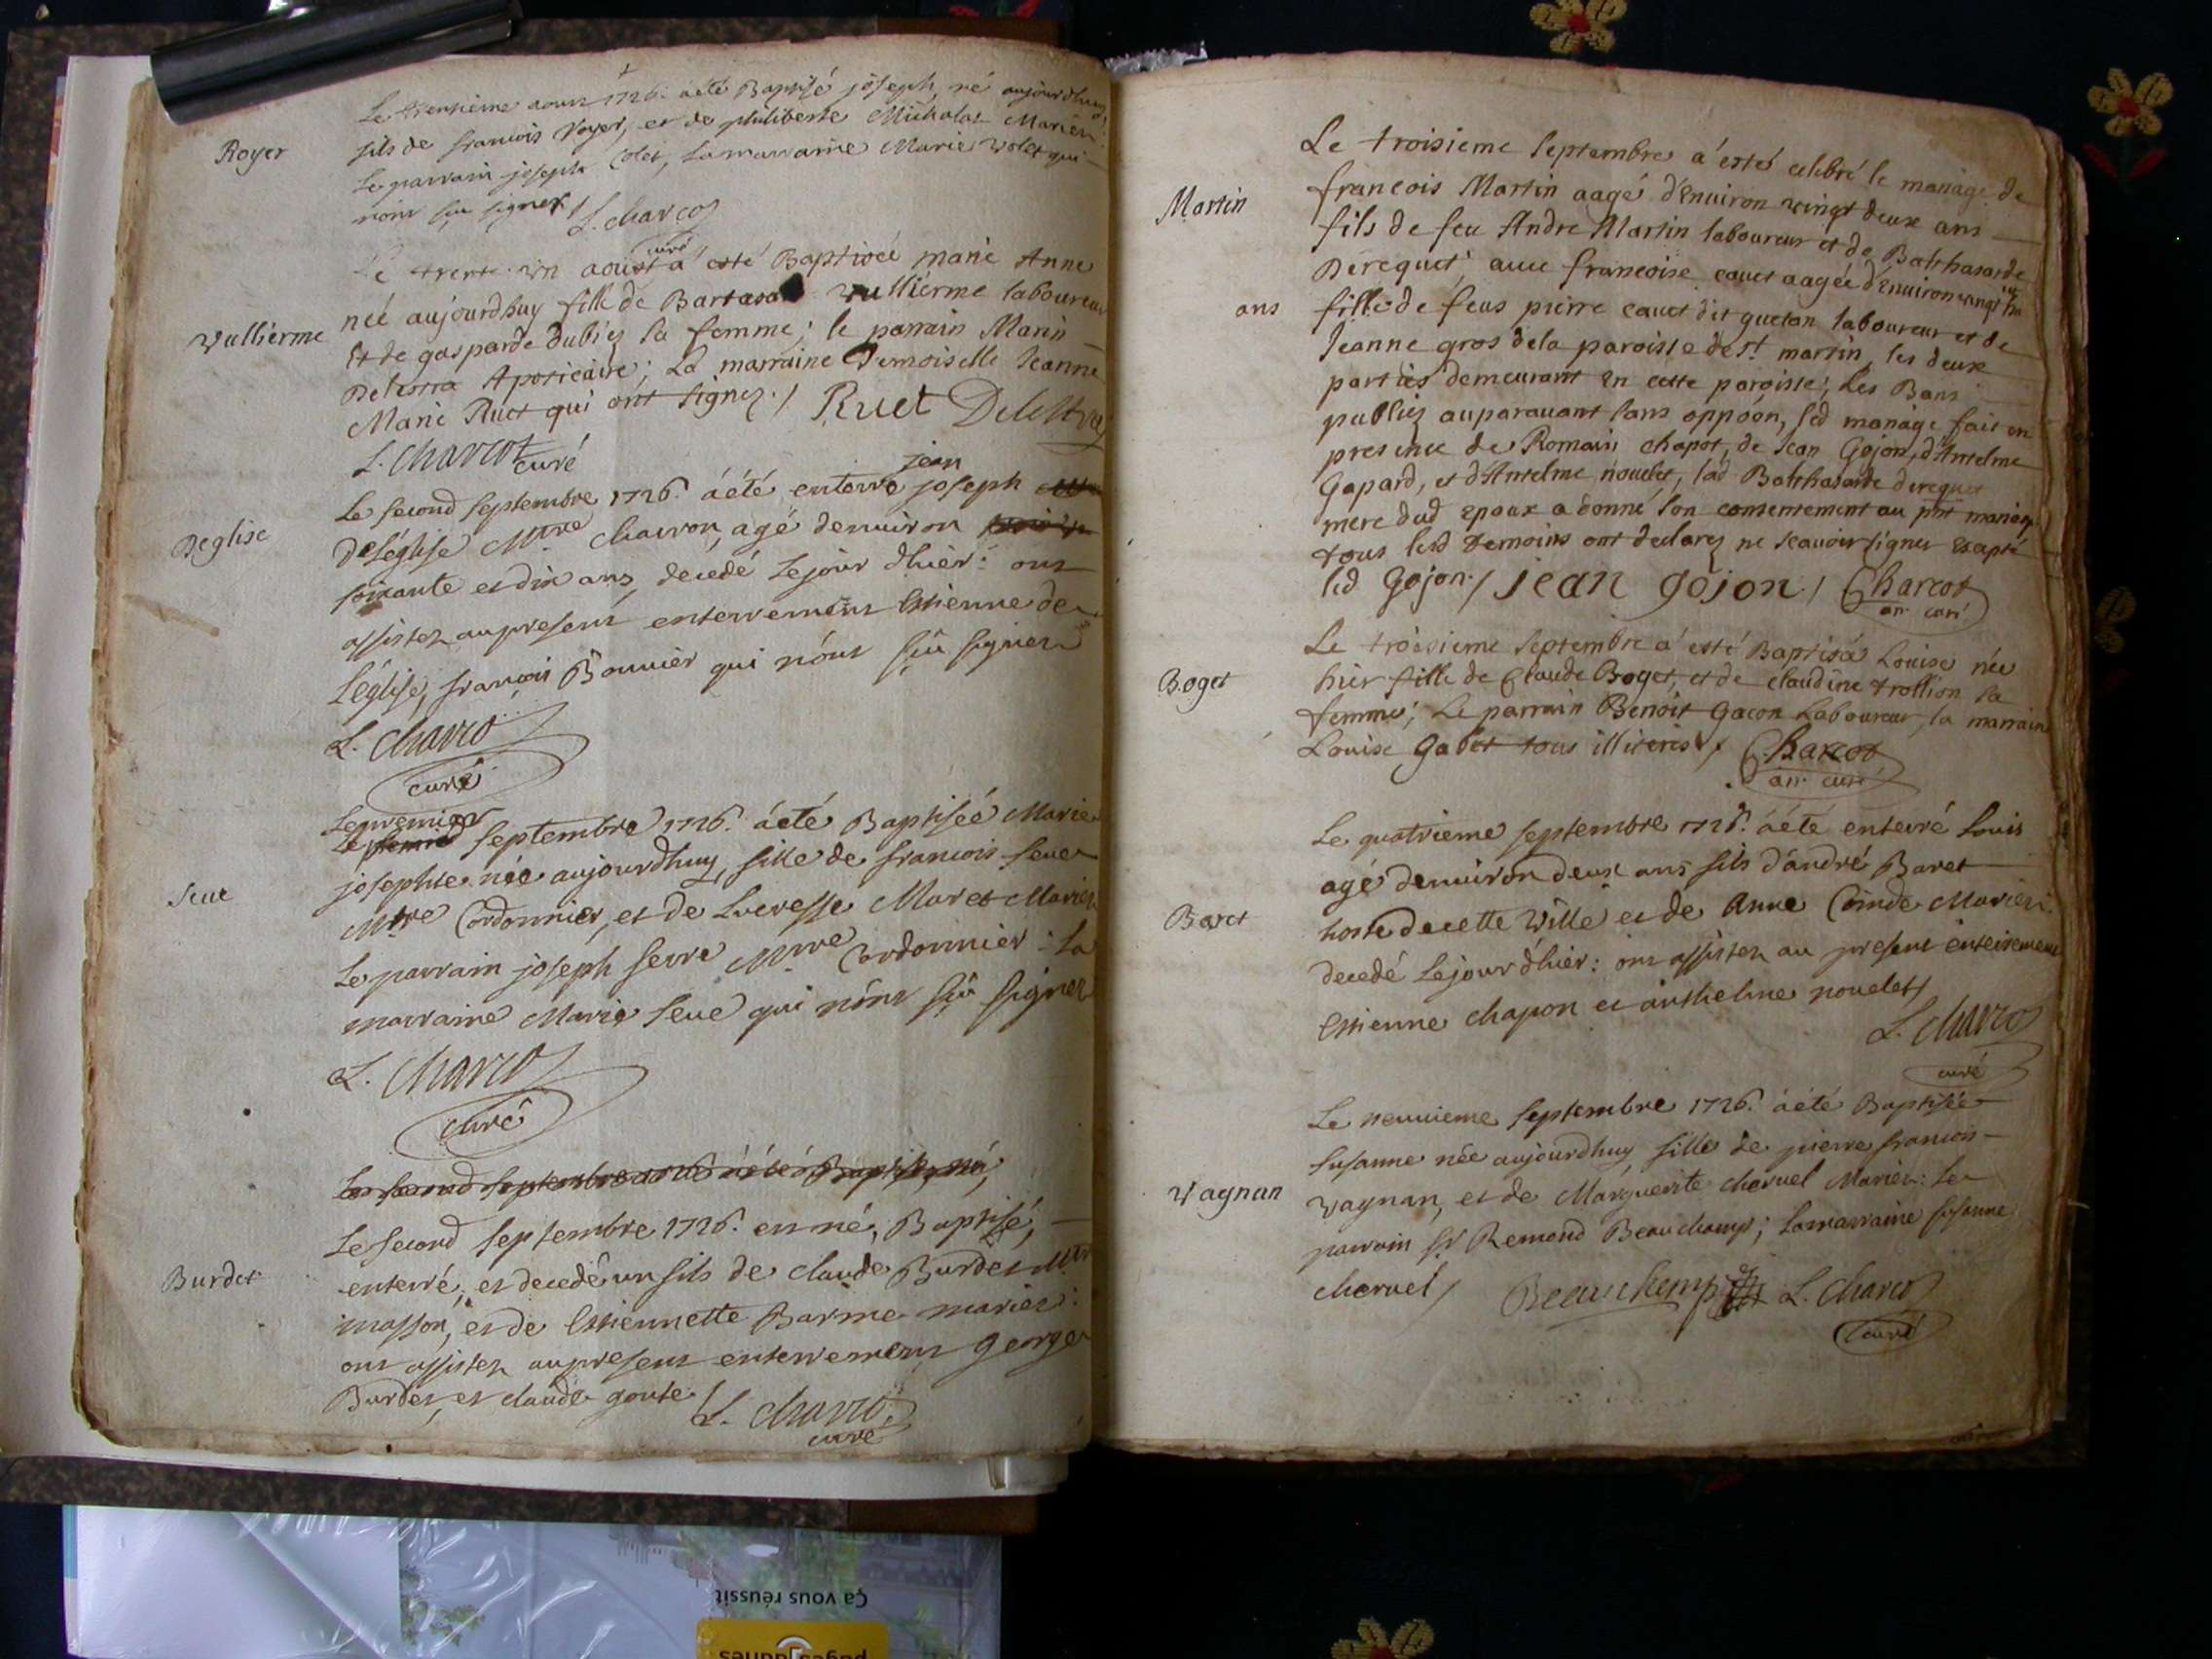 Royer
Le trentième aoust 1726. a été Baptisé joseph, né aujourdhuy
fils de francois Royer, et de philiberte Michalat Mariez
Le parrain joseph Colet, La marraine Marie Volet qui
n'ont sçu signer / L. Charcot
curé
Vullierme
Le trente un aoust a esté Baptisée marie Anne
née aujourdhuy fille de Bartasar Vullierme laboureur
Et de gasparde dubiez sa femme; le parrain Marin
Delestra Apoticaire; La marraine Demoiselle Jeanne
Marie Ruet qui ont signez. / Ruet Delestra
L. Charcot curé
Deglise
jean
Le second septembre 1726. a été enterré joseph
de léglise Mtre Charron, agé denuiron
soixante et dix ans, decedé Le jour dhier: ont
assistez au present enterrement Estienne de
Léglise, francois Bonnier qui n'ont sçû signer
L. Charcot
curé
Seue
Le premier
Le septembre 1726. a été Baptisée Marie
josephte née aujourdhuy, fille de francois Seue
Mtre Cordonnier, et de Lucresse Maret Mariez
Le parrain joseph Serre Mtre Cordonnier: La
marraine Marie Seue qui n'ont sçû signer
L. Charcot
curé
Le second septembre 1726 a été Baptisé, né,
Burdet
Le second septembre 1726. est né, Baptisé,
enterré, et decedé un fils de claude Burdet Mtre
masson, et de Estiennette Barme mariez:
ont assistez au present enterrement george
Burdet, et claude goute / L. Charcot
curé
Martin
Le troisieme septembre a esté celebré le mariage de
francois Martin aagé d'enuiron vingt deux ans
fils de feu Andre Martin laboureur et de Balthasarde
Derequet; auec francoise cauet aagée d'enuiron vingt
ans fille de feus pierre cauet dit guetan laboureur et de
Jeanne gros de la paroisse de st martin, les deux
parties demeurant en cette paroisse; Les Bans
publiez auparauant sans oppóon, led mariage fait en
presence de Romain chapot, de Jean Gojon, d'Antelme
Gapard, et d'Antelme nouelet, lad Balthasarde derequet
mere dud epoux a donné son consentement au pnt mariage
tous lesd temoins ont declarez ne scauoir signer excepté
led Gojon. / jean gojon / Charcot
arr. curé
Boget
Le troisieme septembre a esté Baptisá Louise née
hier fille de Claude Boget, et de claudine trollion sa
femme; Le parrain Benoit Gacon Laboureur, la marraine
Louise Gabet tous illiterés / Charcot
arr. curé
Baret
Le quatrième septembre 1726. a été enterré Louis
agé denuiron deux ans fils d'andré Baret
hoste de cette Ville et de Anne Cointe Mariez
decedé Le jour d'hier: ont assistez au present enterrement
Estienne chapon et anthelme nouelet /
L. Charcot
curé
Vagnan
Le neuuieme septembre 1726. a été Baptisée
Susanne née aujourdhuy fille de pierre francois
Vagnan, et de Marguerite charuel Mariez: Le
parrain Sr Remond Beauchamp; La marraine susanne
charuel / Beauchemp L. Charcot
curé
Ça vous réussit
pages jaunes